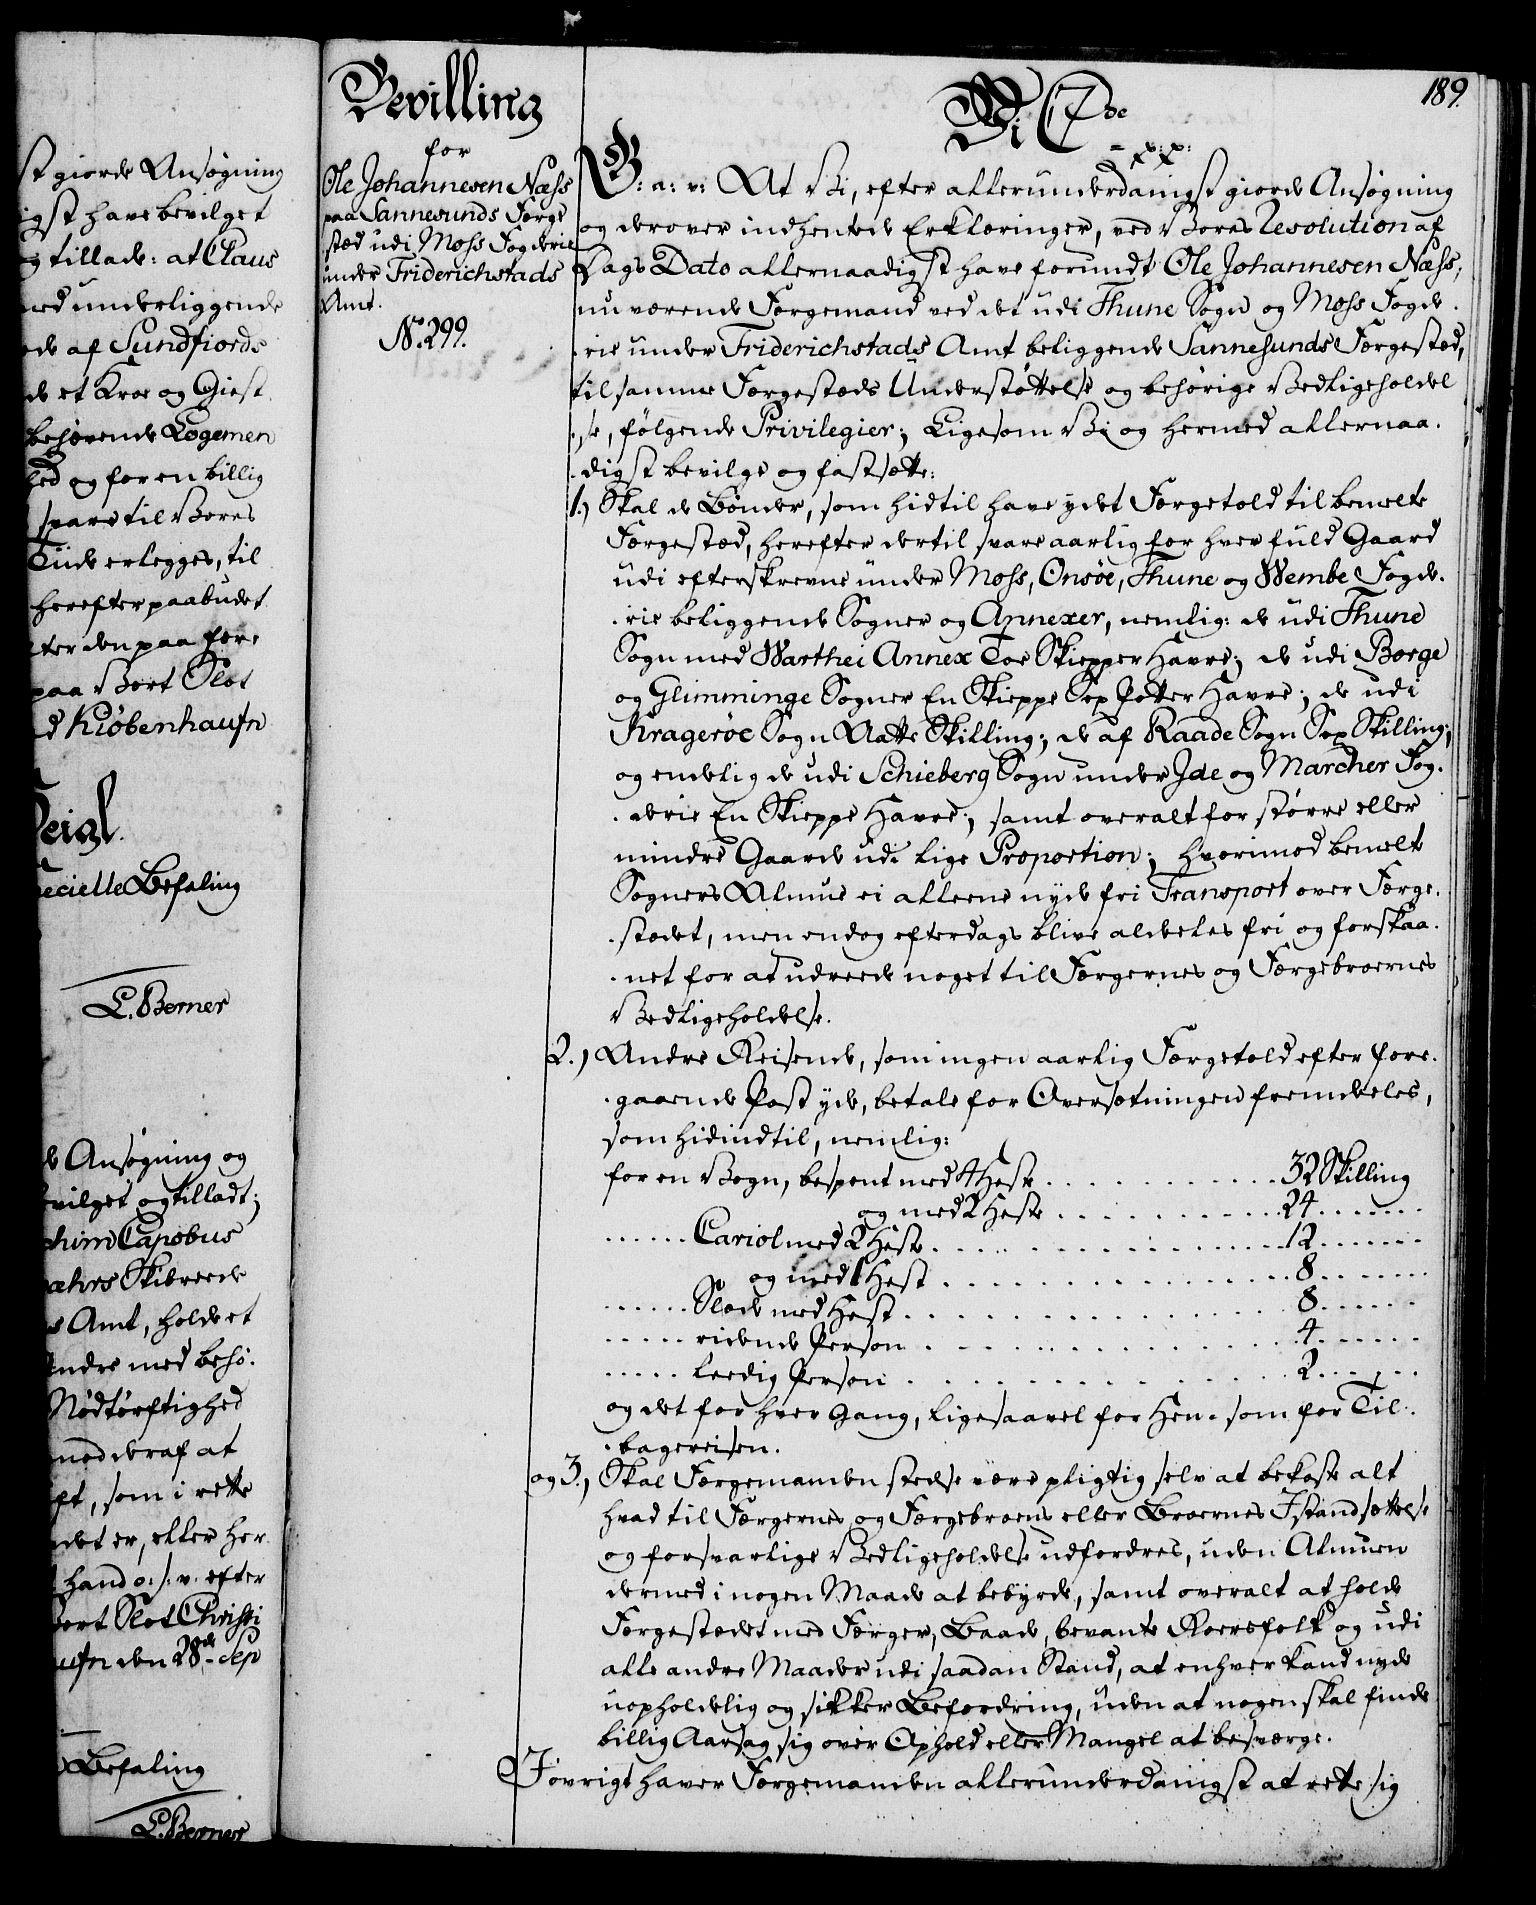 st giorde Ansøgning
igst have bevilget
g tillade: at Claus
med underliggende
de af Sundfiords
de et Kroe og Giest
behøvende Logemen
hed og for en billig
svare til Vores
Tiide erlegges, til
herefter paabudet
ter den paa fore
paa Vort Slot
d Kiöbenhaufn
Seigl.
ecielle Befaling
L. Berner
de Ansøgning og
vilget og tilladt;
chim Capobus
Skibreede
s Amt, holde et
Andre med behø-
Nødtørftighed
med deraf at
ft, som i rette
det er, eller her
hand o: s: v. efter
Vort Slot Christi
ufn den 28de Sep
Befaling
L. Berner
Bevilling
for
Ole Johannesen Næss
paa Sannesunds Færge
stæd udi Moss Fogderie
under Friderichstads
Amt.
No. 299.
189.
Vi C 7de
G: a: v: At Vi, efter allerunderdanigst giorde Ansøgning
og derover indhentede Erklæringer, ved Vores Resolution af
Dags Dato allernaadigst have forundt Ole Johannesen Næss,
nu værende Færgemand ved det udi Thune Sogn og Moss Fogde-
rie under Friderichstads Amt beliggende Sannesunds Færgestæd,
til samme Færgestæds Understøttelse og behørige Vedligeholdel
se, følgende Privilegier; Ligesom Vi og hermed allernaa-
digst bevilge og fastsætte:
1.) Skal de Bønder, som hidtil have ydet Færgetold til bemelte
Færgestæd, herefter dertil svare aarlig for hver fuld Gaard
udi efterskrevne under Moss, Onsöe, Thune og Wembe Fogde-
rie beliggende Sogner og Annexer, nemlig: de udi Thune
Sogn med Warthei Annex Toe Skiepper Havre; de udi Borge
og Glimminge Sogner En Skieppe Sex Potter Havre; de udi
Kragerøe Sogn Aatte Skilling; de af Raade Sogn Sex Skilling;
og endelig de udi Schieberg Sogn under Jde og Marcher Fog-
derie En Skieppe Havre; samt overalt for større eller
mindre Gaarde udi lige Proportion; hvorimod bemelt
Sogners Almue ei alleene nyde fri Transport over Færge-
stædet, men endog efterdags blive aldeeles fri og forskaa-
net for at udreede noget til Færgernes og Færgebroernes
Vedligeholdelse.
2.) Andre Reisende, som ingen aarlig Færgetold efter fore-
gaaende Post yde, betale for Oversætningen fremdeeles,
som hidindtil, nemlig:
for en Vogn, bespent med 4 Heste . . . . . 32 Skilling
og med 2 Heste . . . . . 24 . . . . .
. . . . . Cariol med 2 Heste . . . . . 12 . . . . .
og med 1 Hest . . . . . 8 . . . . .
. . . . . Slæde med Hest . . . . . 8 . . . . .
. . . . . ridende Person . . . . . 4 . . . . .
. . . . . Leedig Person . . . . . 2 . . . . .
og det for hver Gang, ligesaavel for Hen- som for Til-
bagereisen.
og 3.) Skal Færgemanden stedse være pligtig selv at bekoste alt
hvad til Færgernes og Færgebroens eller Broernes Jstandsættelse
og forsvarlige Vedligeholdelse udfordres, uden Almuen
dermed i nogen Maade at bebyrde, samt overalt at holde
Færgestædet med Færger, Baade, bevante Roersfolk og udi
alle andre Maader udi saadan Stand, at enhver kand nyde
uopholdelig og sikker Befordring, uden at nogen skal finde
billig Aarsag sig over Ophold eller Mangel at besværge.
J øvrigt haver Færgemanden allerunderdanigst at rette sig